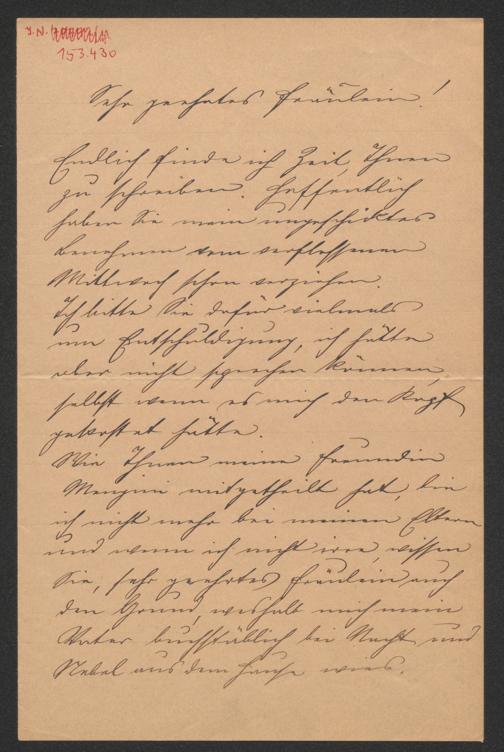 J.N.
153.430
Sehr geehrtes Fräulein!
Endlich finde ich Zeit, Ihnen
zu schreiben. Hoffentlich
haben Sie mein ungeschicktes
Benehmen vom verflossenen
Mittwoch schon verziehen.
Ich bitte Sie dafür vielmals
um Entschuldigung, ich hätte
aber nicht sprechen können,
selbst wenn es mich den Kopf
gekostet hätte.
Wie Ihnen meine Freundin
mitgetheilt hat, bin
ich nicht mehr bei meinen Eltern
und wenn ich nicht irre, wissen
Sie, sehr geehrtes Fräulein auch
den Grund, weshalb mich mein
Vater buchstäblich bei Nacht und
Nebel aus dem Hause wies.